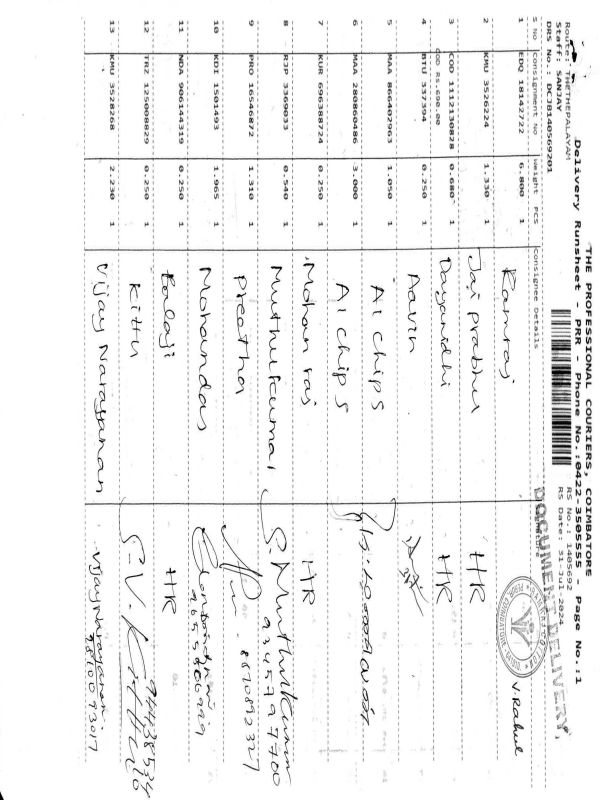 THE PROFESSIONAL COURIERS, COIMBATORE
Delivery Runsheet - PRR - Phone No.:0422-3505555 - Page No.:1
Route: THETHEPALAYAM
Staff: SANJAY
DRS No.: DCJB140569201
RS No.: 1405692
RS Date: 31-Jul-2024
DOCUMENT DELIVERY,
S No Consignment No Weight PCS Consignee Details Signature
1 EDQ 18142722 6.800 1 Ramraj V. Rahul
2 KMU 3526224 1.330 1 Jai prabhu HR
3 COD 1112130828 0.680 1 Dayanidhi HR
COD Rs.690.00
4 BTU 337394 0.250 1 Aavin
5 MAA 866402963 1.050 1 A1 chips
6 MAA 280860486 3.000 1 A1 chips
7 KUR 696388724 0.250 1 Mohan raj HR
8 RJP 3369033 0.540 1 Muthukumar S. Muthukumar
9345797700
9 PRO 16546872 1.310 1 Preetha 8870892327
10 KDI 1501493 1.965 1 Mohandas
11 NDA 906144319 0.250 1 Balaji HR
12 TRZ 125008829 0.250 1 Kittu S.V. Kitthu
13 KMU 3528268 2.230 1 Vijay Narayanan Vijay Narayanan.
9810093017